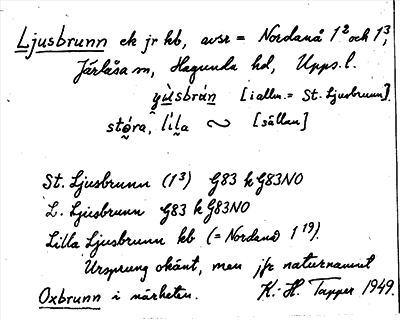 Ljusbrunn ek jr kb, avsr = Nordanå 1² och 1³,
Järlåsa sn, Hagunda hd, Upps. l.
yùsbrún [i allm. = St. Ljusbrunn].
stóra, líla ~ [sällan]
St. Ljusbrunn (1³) G83 k G83NO
L. Ljusbrunn G83 k G83NO
Lilla Ljusbrunn kb (= Nordanå 1¹⁹).
Ursprung okänt, men jfr naturnamnet
Oxbrunn i närheten. K.-H. Tapper 1949.